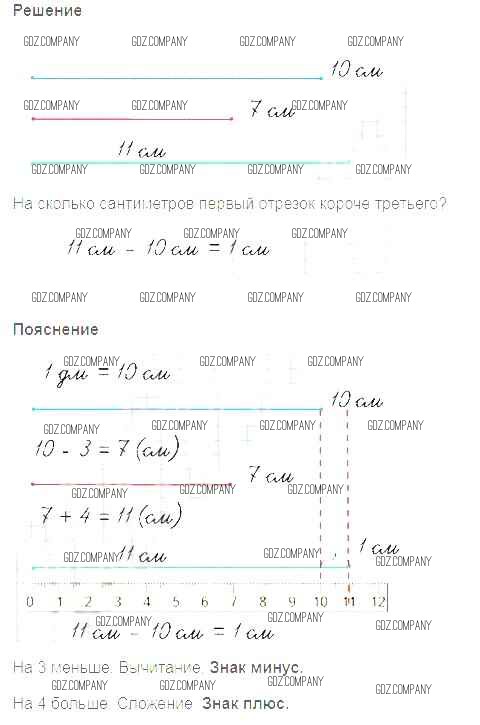 Решение
GDZ.COMPANY GDZ.COMPANY GDZ.COMPANY GDZ.COMPANY
10 см
GDZ.COMPANY GDZ.COMPANY 7 см GDZ.COMPANY
11 см
GDZ.COMPANY GDZ.COMPANY GDZ.COMPANY GDZ.COMPANY
На сколько сантиметров первый отрезок короче третьего?
GDZ.COMPANY GDZ.COMPANY GDZ.COMPANY
11 см - 10 см = 1 см
GDZ.COMPANY GDZ.COMPANY GDZ.COMPANY GDZ.COMPANY
Пояснение
GDZ.COMPANY GDZ.COMPANY GDZ.COMPANY
1 дм = 10 см
10 см
GDZ.COMPANY GDZ.COMPANY GDZ.COMPANY GDZ.COMPANY
10 - 3 = 7 (см)
7 см
GDZ.COMPANY GDZ.COMPANY GDZ.COMPANY
7 + 4 = 11 (см)
GDZ.COMPANY 11 см GDZ.COMPANY 1 см
GDZ.COMPANY
0 1 2 3 4 5 6 7 8 9 10 11 12
GDZ.COMPANY GDZ.COMPANY GDZ.COMPANY
11 см - 10 см = 1 см
На 3 меньше. Вычитание. Знак минус.
GDZ.COMPANY GDZ.COMPANY GDZ.COMPANY GDZ.COMPANY
На 4 больше. Сложение. Знак плюс.